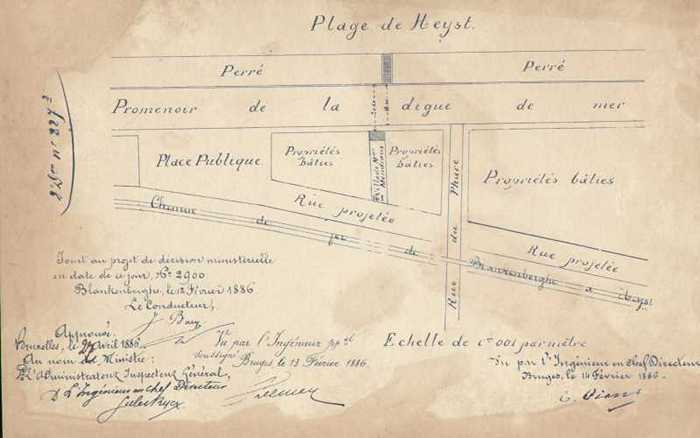 Plage de Heyst.
Perré
Perré
Promenoir de la digue de mer
Place Publique
Propriétés bâties
Propriétés bâties
Rue du Phare
Propriétés bâties
Rue projetée
Rue projetée
Chemin de fer de Blankenberghe à Heyst
Joint au projet de décision ministérielle
en date de ce jour, N° 2900
Blankenberghe, le 12 Février 1886
Le Conducteur,
Approuvé:
Bruxelles, le Avril 1886.
Au nom du Ministre:
L'Administrateur Inspecteur Général,
L'Ingénieur en chef Directeur
Vu par l'Ingénieur pp.al
soussigné Bruges, le 13 Février 1886.
Echelle de 0m001 par mètre
Vu par l'Ingénieur en Chef Directeur
Bruges, le 14 Février 1886.